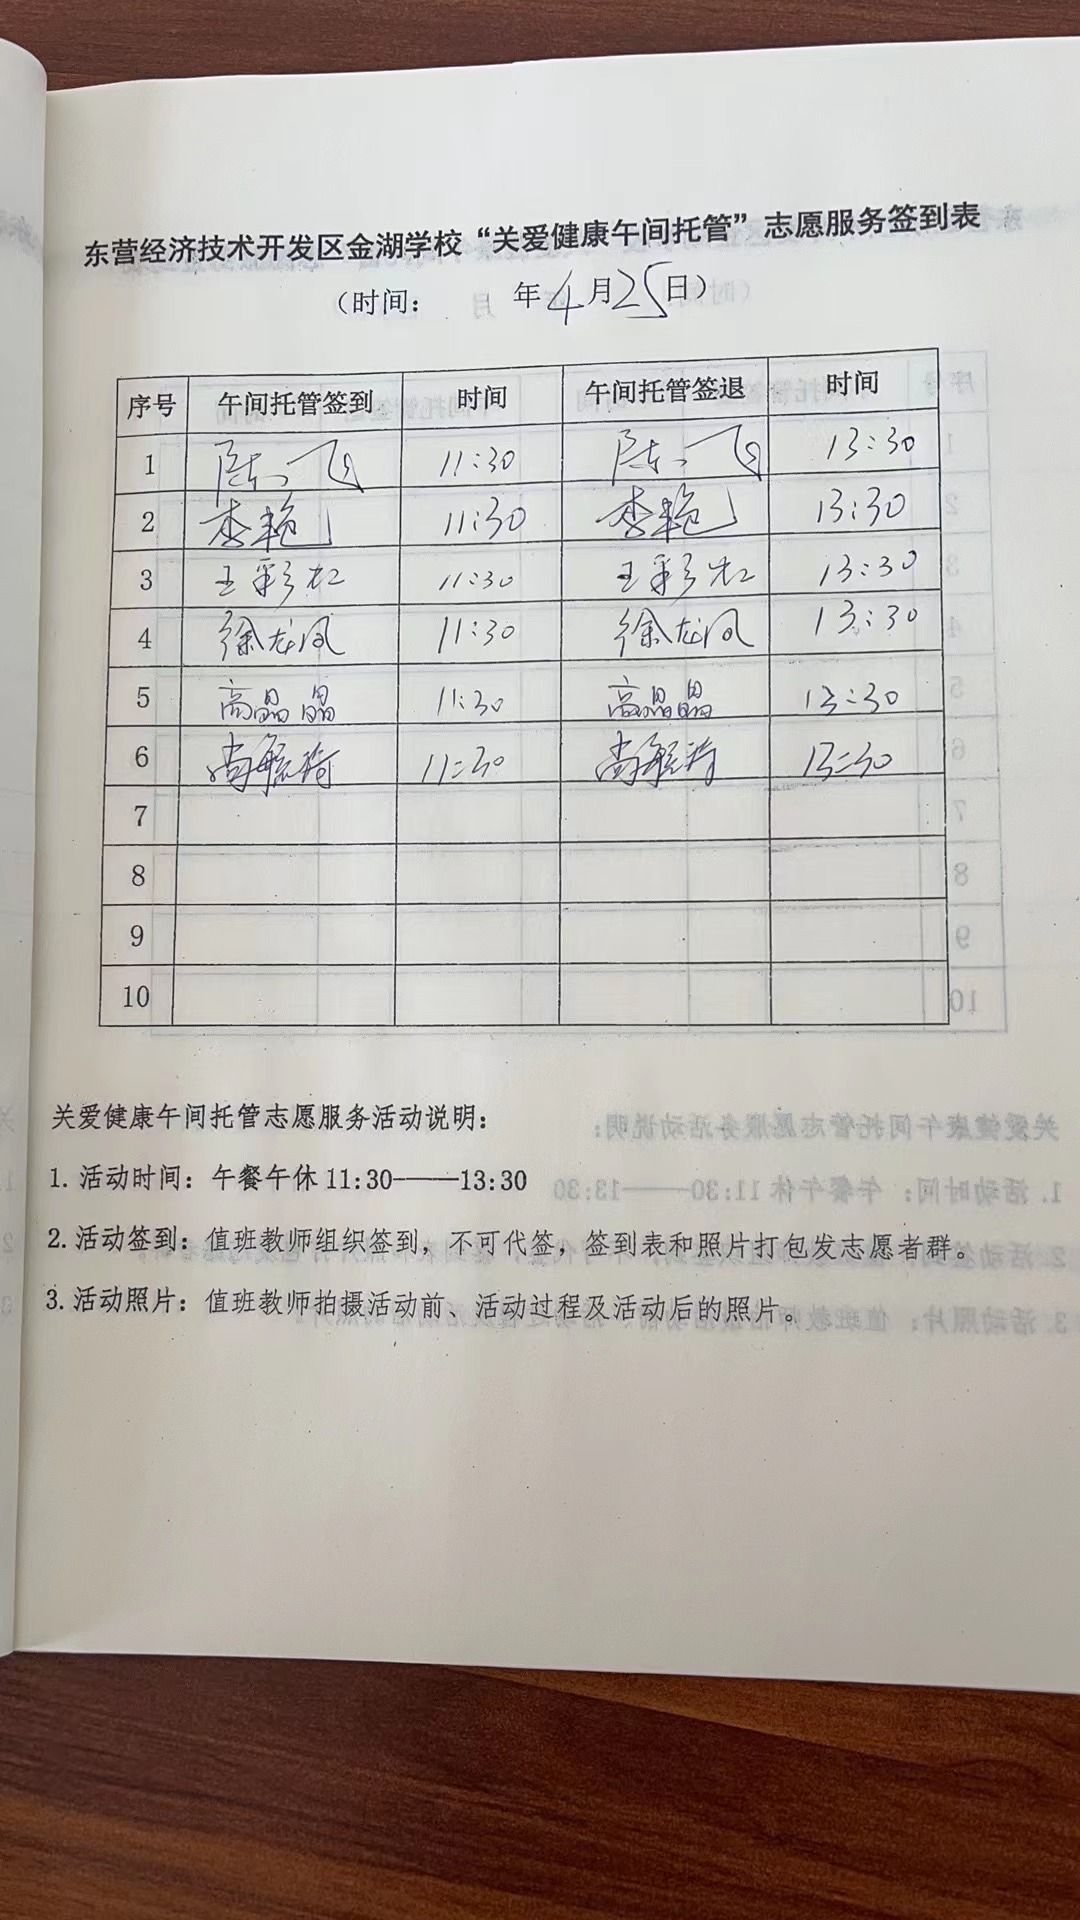 东营经济技术开发区金湖学校“关爱健康午间托管”志愿服务签到表
（时间： 年4月25日）
序号 午间托管签到 时间 午间托管签退 时间
1 陈飞 11:30 陈飞 13:30
2 李艳 11:30 李艳 13:30
3 王彩虹 11:30 王彩虹 13:30
4 徐龙凤 11:30 徐龙凤 13:30
5 高晶晶 11:30 高晶晶 13:30
6 尚毓琦 11:30 尚毓琦 13:30
7
8
9
10
关爱健康午间托管志愿服务活动说明：
1.活动时间：午餐午休11:30——13:30
2.活动签到：值班教师组织签到，不可代签，签到表和照片打包发志愿者群。
3.活动照片：值班教师拍摄活动前、活动过程及活动后的照片。